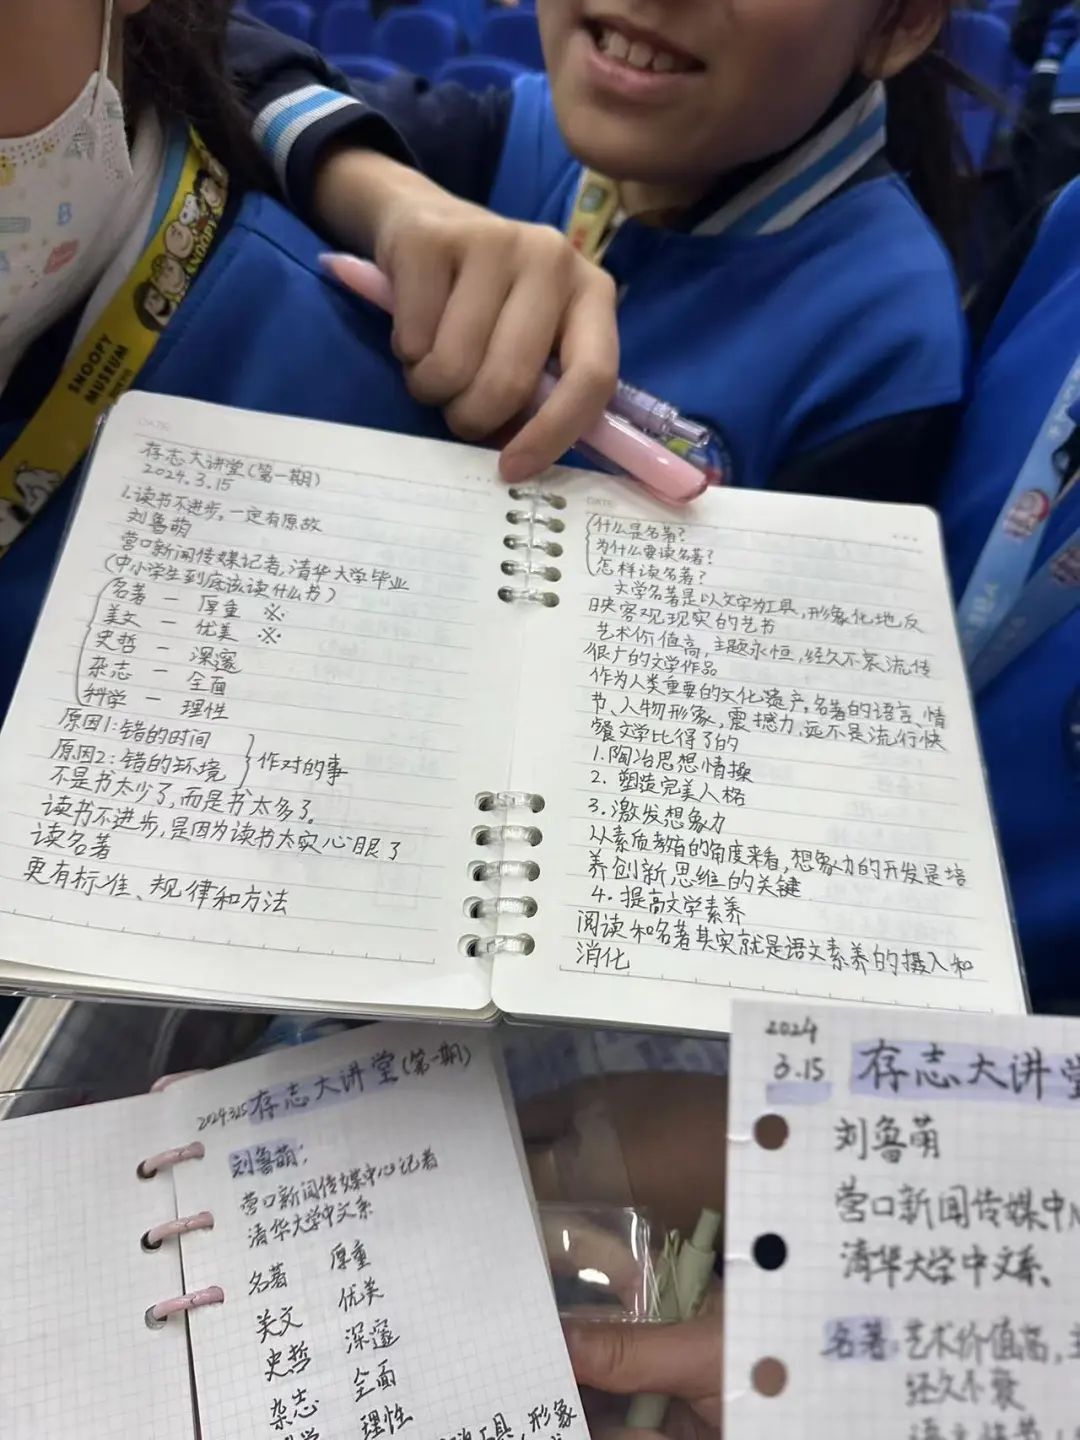 SNOOPY
MUSEUM
SNOOPY
DATE:
存志大讲堂(第一期)
2024.3.15
1.读书不进步,一定有原故
刘鲁萌
营口新闻传媒记者,清华大学毕业
(中小学生到底该读什么书)
名著 — 厚重 ※
美文 — 优美 ※
史哲 — 深邃
杂志 — 全面
科学 — 理性
原因1:错的时间
原因2:错的环境
作对的事
不是书太少了,而是书太多了。
读书不进步,是因为读书太实心眼了
读名著
更有标准、规律和方法
DATE:
什么是名著?
为什么要读名著?
怎样读名著?
文学名著是以文字为工具,形象化地反
映客观现实的艺书
艺术价值高,主题永恒,经久不衰流传
很广的文学作品
作为人类重要的文化遗产。名著的语言、情
节、人物形象,震撼力,远不是流行快
餐文学比得了的
1.陶冶思想情操
2.塑造完美人格
3.激发想象力
从素质教育的角度来看,想象力的开发是培
养创新思维的关键
4.提高文学素养
阅读和名著其实就是语文素养的摄入和
消化
2024.3.15 存志大讲堂(第一期)
刘鲁萌:
营口新闻传媒中心记者
清华大学中文系
名著 厚重
美文 优美
史哲 深邃
杂志 全面
理性
工具,形象
2024
3.15 存志大讲堂
刘鲁萌
营口新闻传媒中
清华大学中文系、
名著:艺术价值高,
经久不衰